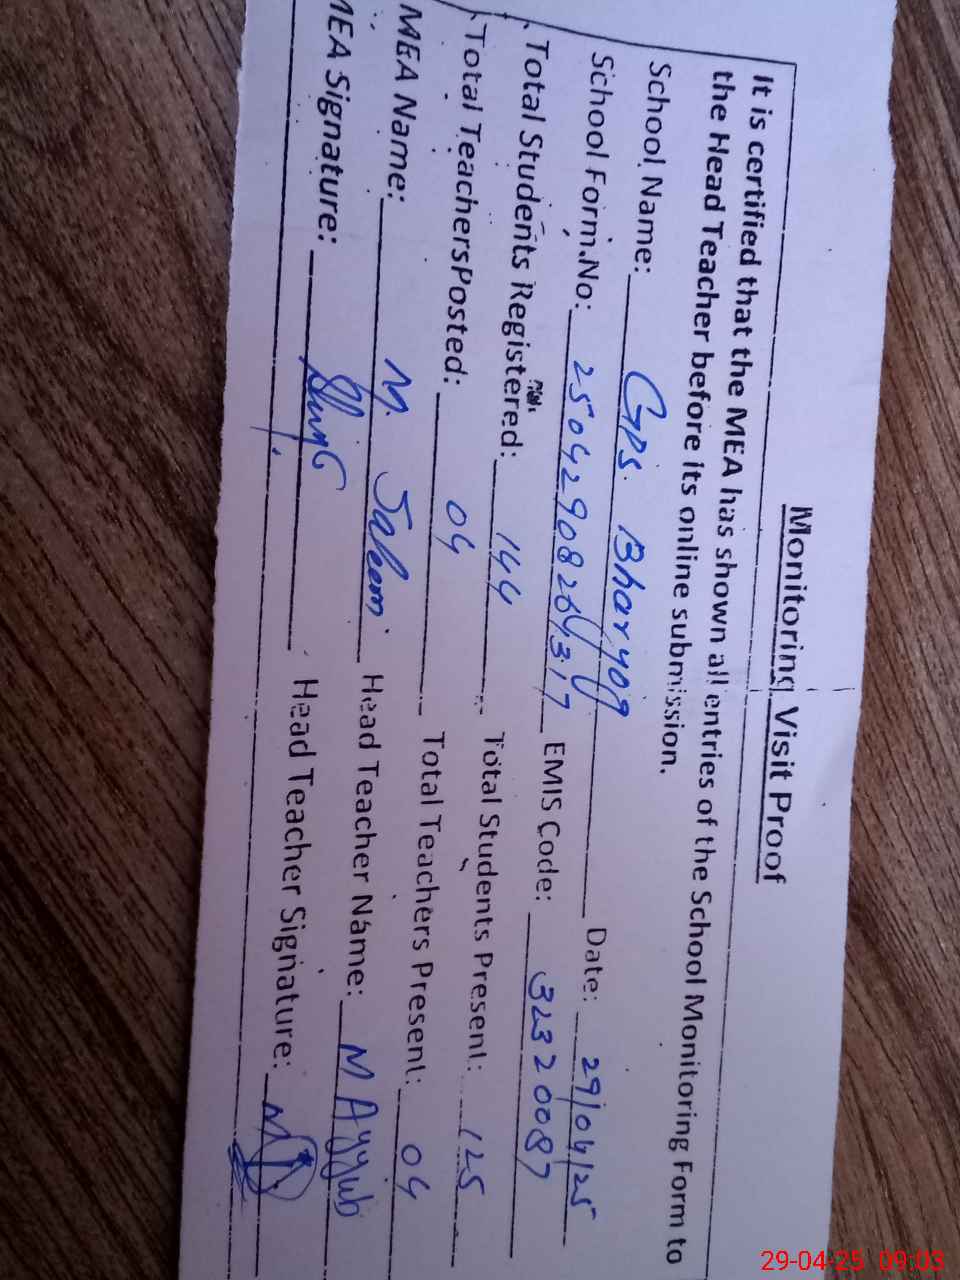 Monitoring Visit Proof
It is certified that the MEA has shown all entries of the School Monitoring Form to
the Head Teacher before its online submission.
School Name: GPS. Bharyog Date: 29/04/25
School Form.No: 25042908264317 EMIS Code: 32320087
Total Students Registered: 144 Total Students Present: 125
Total TeachersPosted: 04 Total Teachers Present: 04
MEA Name: M. Saleem Head Teacher Name: M Ayyub
MEA Signature: Head Teacher Signature:
29-04-25 09:03